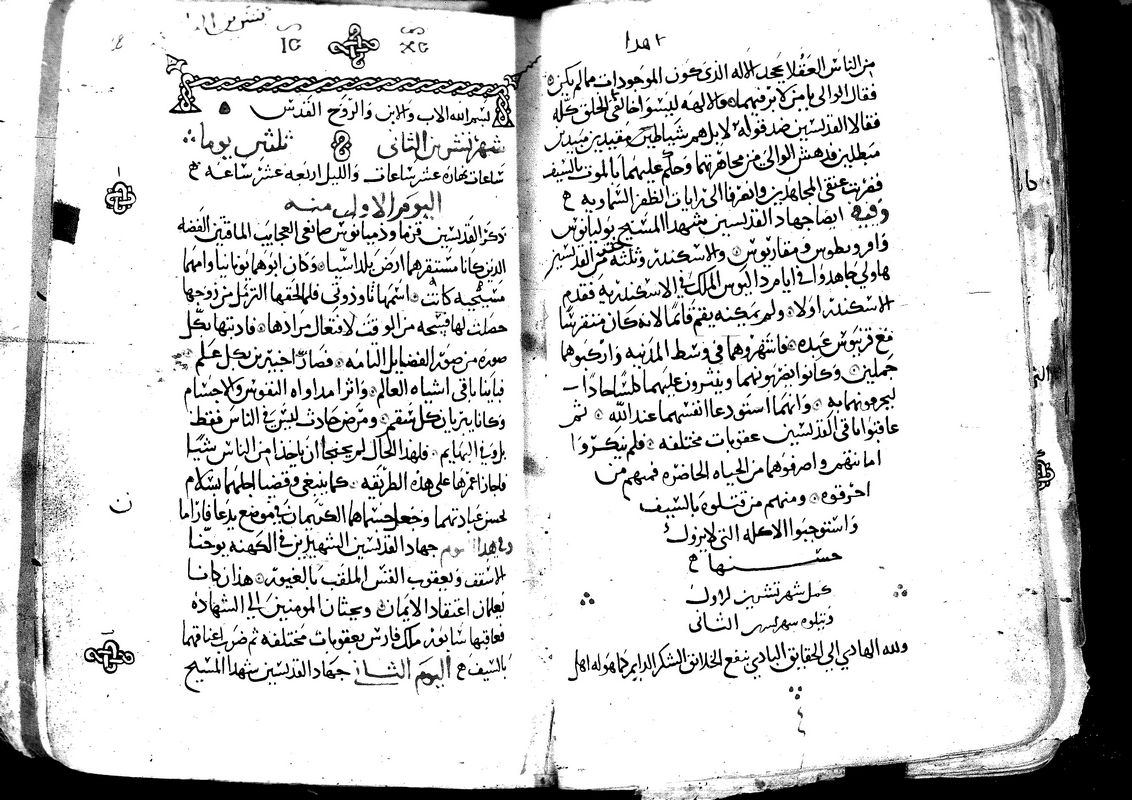 اهدا
من الناس العقلا يجحد الاله الذى كون الموجودات مما لم يكن
فقال الوالى يا من لا يرفيهما والالهه ليسوا خالقى الخلق كله
فقالا القديسين ضد قوله لا بل هم شياطين مفيدين مبيدين
مبطلين فدهش الوالى من مجاهرتهما وحكم عليهما بالموت بالسيف
فضربت عنقى المجاهدين وانصرفا الى رايات الظفر السماويه
وفيه ايضا جهاد القديسين شهدا المسيح يوليانوس
والاسكندر وثلثة من القديسين
هاولى جاهدوا فى ايام الملك فى الاسكندريه فقدم
الاسكندر اولا ولم يمكنه يقم قايما لانه كان منقرسا
مع قرنيوس عبده فاشهروهما فى وسط المدينه واركبوهما
جملين وكانوا يضربونهما وينثرون عليهما كلسا حادا
ليحرقونهما به وانهما استودعا انفسهما عند الله ثم
عاقبوا باقى القديسين عقوبات مختلفه فلم ينكروا
امانتهم واصرفوهما من الحياه الحاضره فمنهم من
احرقوه ومنهم من قتلوه بالسيف
واستوجبوا الاكله التى لا يزول
حسنها
كمل شهر تشرين الاول
ويتلوه شهر تشرين الثانى
ولله الهادي الى الحقايق البادي بنفع الخلايق الشكر الدايم كما هو له اهل
تشرين
ΙϹ ΧϹ
بسم الله الاب والابن والروح القدس
شهر تشرين الثانى ثلثين يوما
ساعات نهاره عشر ساعات والليل اربعه عشر ساعه
اليوم الاول منه
تذكر القديسين قزما ودميانوس صانعى العجايب الماقتين الفضه
الذين كانا مستقرهما ارض بلد اسيا وكان ابوهما يونانيا وامهما
مسيحيه كانت اسمها ثاوذوتى فلما لحقها الترمل من زوجها
حصلت لها فسحه من الوقت لافتعال مرادها فادبتها بكل
صوره من صور الفضايل التامه فصارا خبيرين بكل علم
فباينا باقى اشياه العالم واثرا مداواه النفوس والاجسام
وكانا يبريان كل سقم ومرض حادث ليس فى الناس فقط
بل وفى البهايم فلهذا الحال لم يحتجا ان ياخذا من الناس شيا
فاجازا عمرهما على هذه الطريقه كما ينبغى وقضيا اجلهما بسلام
لحسن عبادتهما وجعل جسماهما الكريمان فى موضع يدعا فارما
وفى هدا اليوم جهاد القديسين الشهيدين فى الكهنه يوحنا
الاسقف ويعقوب القس الملقب بالغيور هذان كانا
يعلمان اعتقاد الايمان ويحثان المومنين الى الشهاده
فعاقبهما سابور ملك فارس بعقوبات مختلفه ثم ضرب اعناقهما
بالسيف اليوم الثانى جهاد القديسين شهدا المسيح